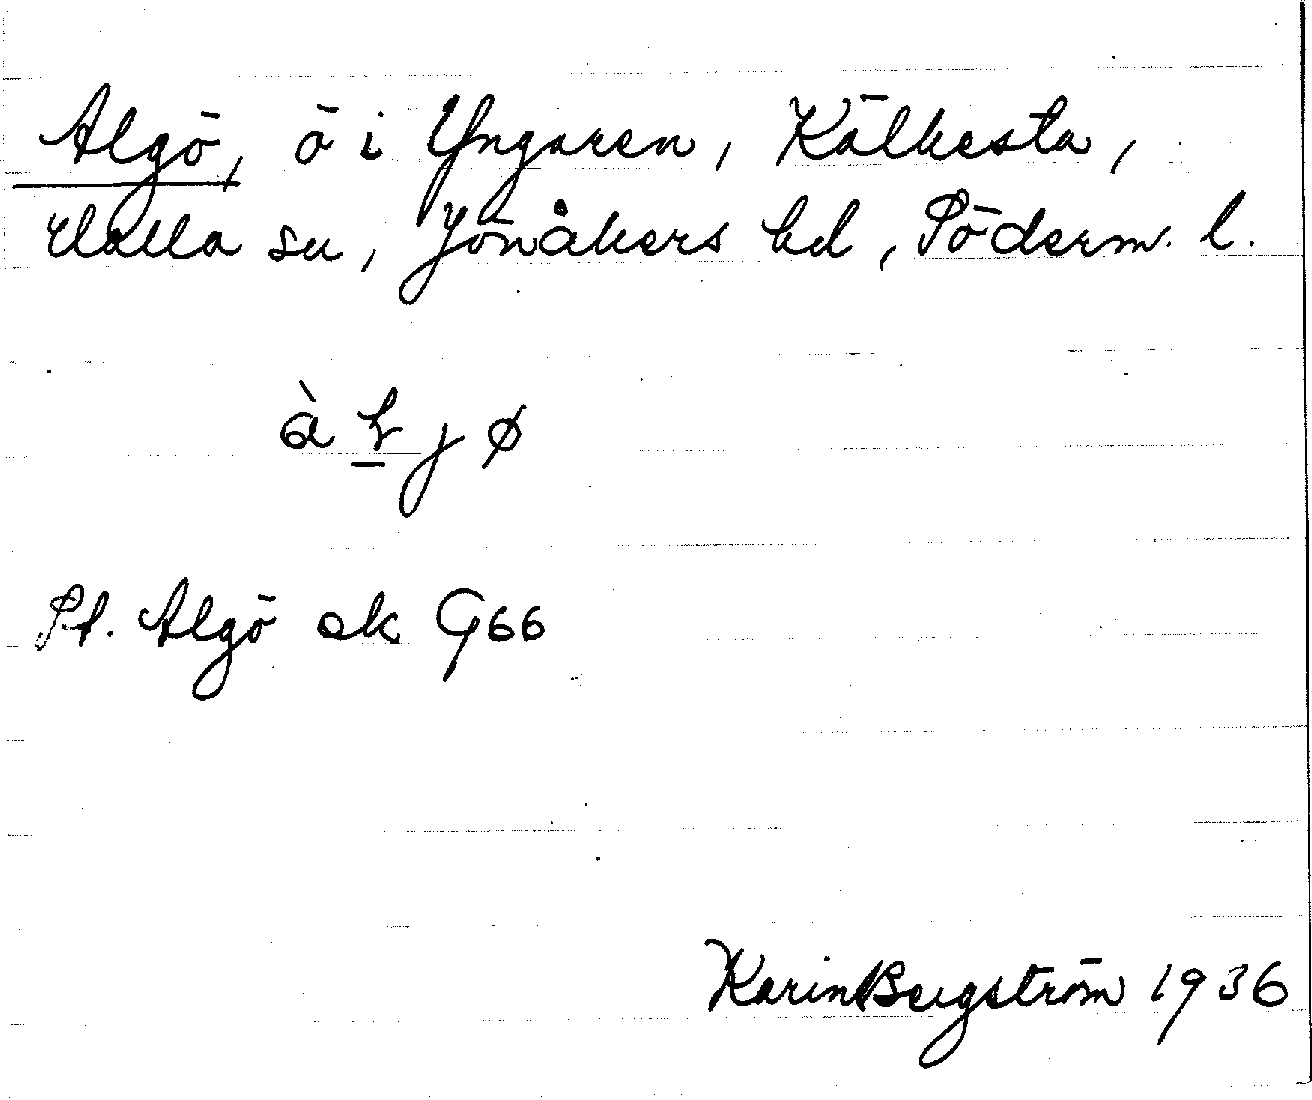 Algö, ö i Yngaren, Kälkesta,
Halla sn, Jönåkers hd, Söderm. l.
àl̠jø
St. Algö ek G66
Karin Bergström 1936